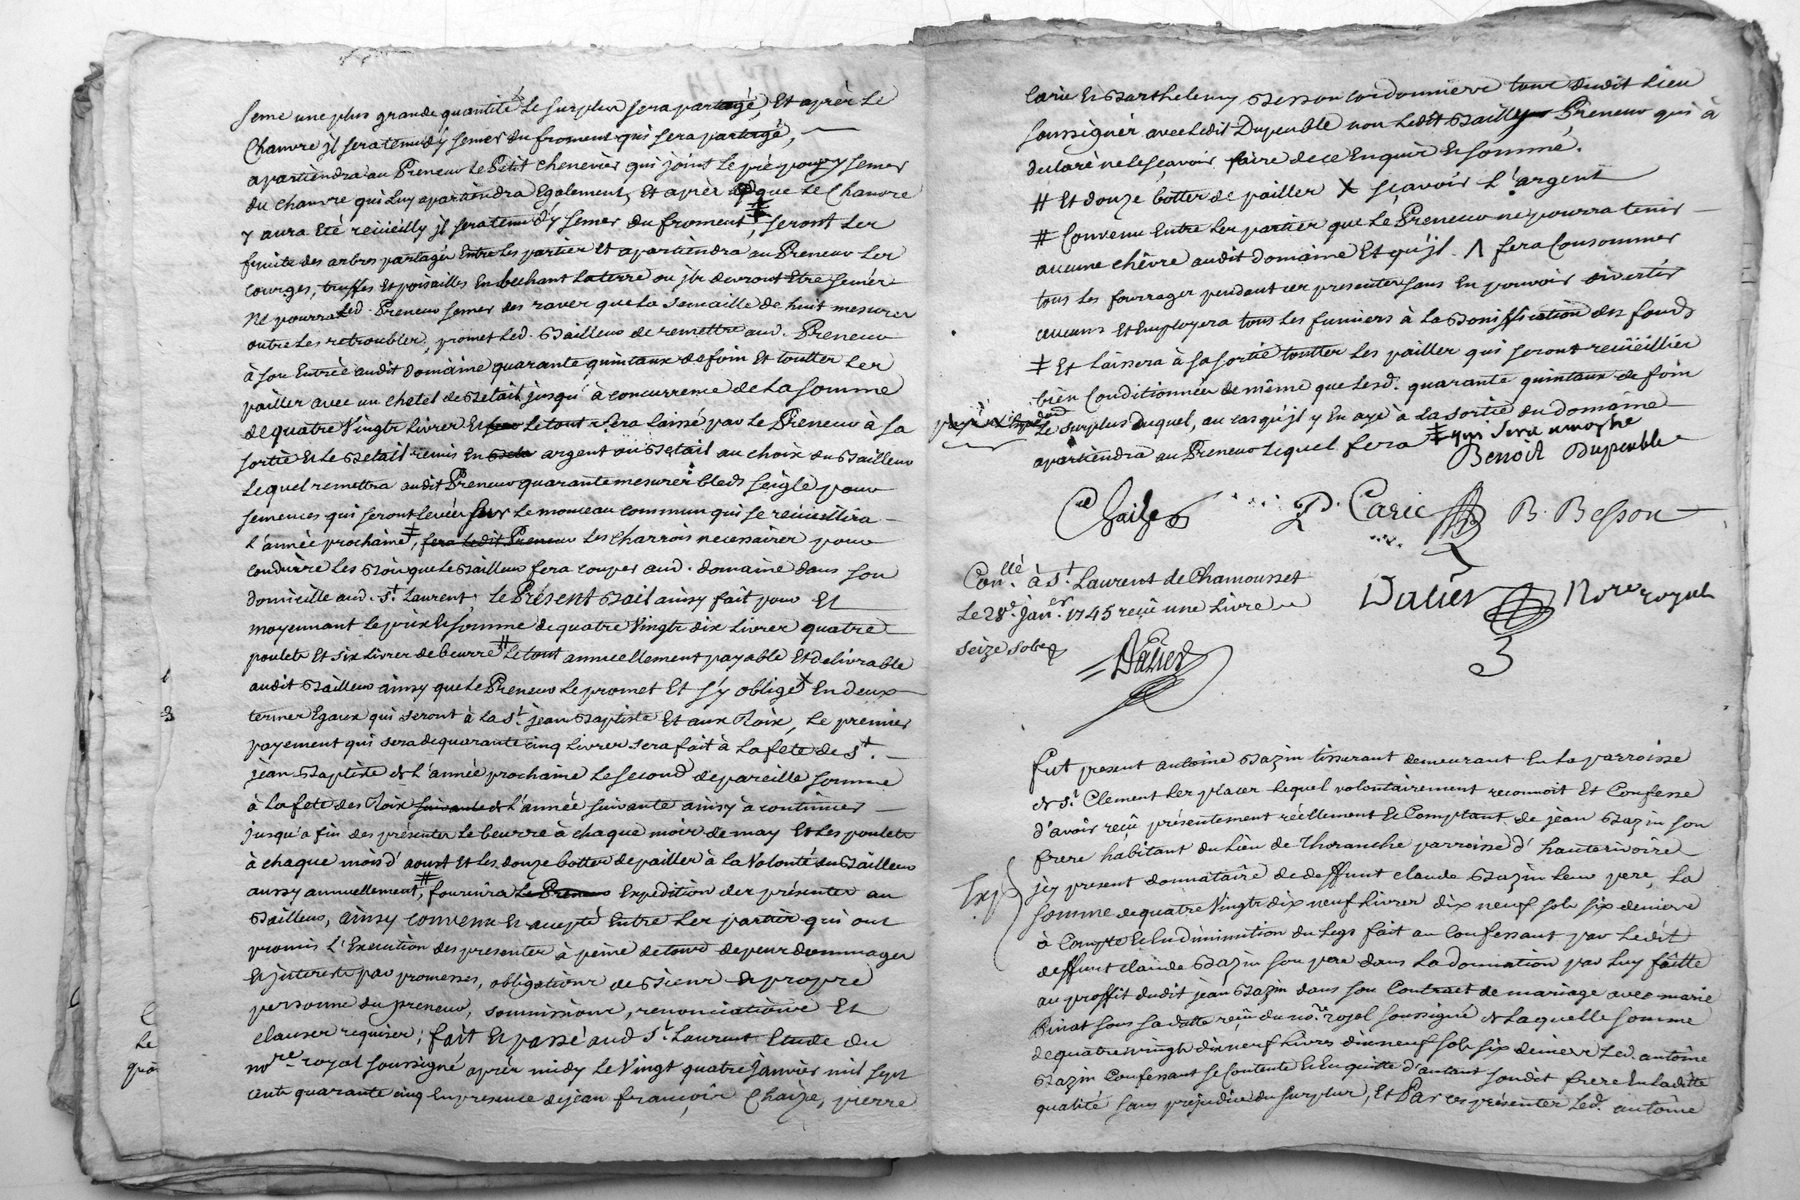 seme une plus grande quantité le surplus sera partagé, Et après le
Chanvre jl sera tenu d'y semer du froment qui sera partagé,
apartiendra au Preneur le Petit chenevier qui joint le pré pour y semer
du chanvre qui luy apartiendra Egalement, Et après que le Chanvre
y aura Eté reciieilly jl sera tenu d'y semer du froment ‡, seront les
fruits des arbres partagés Entre les parties Et apartiendra au Preneur les
courges, truffes Et poisailles En bechant la terre ou jls devront Etre semés
Ne pourra led. Preneur semer des raves que la semaille de huit mesures
outre les retroubles, promet led. Bailleur de remettre aud. Preneur
à son Entrée audit domaine quarante quintaux de foin Et touttes les
pailles avec un chetel de Bétail jusqu'à concurrence de la somme
de quatre Vingts Livres Et le tout sera laissé par le Preneur à sa
sortie Et le Betail remis En argent ou Betail au choix du Bailleur
Lequel remettra audit Preneur quarante mesures bleds seigle pour
semences qui seront levées sur le monceau commun qui se recüeillira
l'année prochaine ‡, fera ledit Preneur les charrois necessaires pour
conduire les Bois que le Bailleur fera couper aud. domaine dans son
domicille aud. St. Laurent. Le Présent Bail ainsy fait pour Et
moyennant le prix Et somme de quatre Vingts dix Livres quatre
poulets Et six Livres de beurre # le tout annuellement payable Et delivrable
audit Bailleur ainsy que le Preneur le promet Et s'y oblige X En deux
termes Egaux qui seront à la St. jean Baptiste Et aux Roix, le premier
payement qui sera de quarante cinq Livres sera fait à la fete de St.
jean Baptiste de l'année prochaine le second de pareille somme
à la fete des Roix suivante de l'année suivante ainsy à continuer
jusqu'a fin des présentes le beurre à chaque mois de may Et les poulets
à chaque mois d'aoust Et les douze bottes de pailles à la Volonté du Bailleur
aussy annuellement, # fournira le Preneur Expedition des présentes au
Bailleur, ainsy convenu Et accepté Entre les parties qui ont
promis l'Execution des presentes à peine de tous depens dommages
Et jnterests par promesses, obligations de Biens Et propre
personne du preneur, soumissions, renonciations Et
clauses requises; fait Et passé aud St. Laurent Etude du
nore. royal soussigné après midy le Vingt quatre janvier mil sept
cents quarante cinq En presence de jean françois Chaize, pierre
Caric Et Barthelemy Besson cordonniers tous dudit Lieu
soussignés avec ledit Dupeuble non ledit Bailly Preneur qui à
declaré ne le sçavoir faire de ce Enquis Et sommé.
# Et douze bottes de pailles X sçavoir l'argent
# Convenu Entre les parties que le Preneur ne pourra tenir
aucune chèvre audit domaine Et qu'jl Λ fera Consommer
tous les fourrages pendant ces presentes sans En pouvoir divertir
aucuns Et Employera tous les fumiers à la Bonification des fonds
‡ Et laissera à sa sortie touttes les pailles qui seront recüeillies
bien Conditionnées de même que lesd. quarante quintaux de foin
le surplus duquel, au cas qu'jl y En aye à la sortie du domaine
apartiendra au Preneur lequel fera ‡ qui sera
Benoit Dupeuble
Chaize P. Caric B. Besson
Conllé. à St. Laurent de Chamousset
Le 28e. janer. 1745 reçü une Livre
seize sols
Dalier Nore royal
Dalier
Fut present antoine Bazin tisserant demeurant En la parroisse
de St. Clement les places lequel volontairement reconnoit Et Confesse
d'avoir reçü présentement réellement Et Comptant de jean Bazin son
frere habitant du Lieu de Thoranche parroisse d'hauterivoire
Exp
jcy present donnataire de deffunt claude Bazin leur pere, La
somme de quatre Vingts dix neuf Livres dix neuf sols six deniers
à Compte Et En diminution du Legs fait au Confessant par ledit
deffunt claude Bazin son pere dans La donnation par luy faitte
au proffit dudit jean Bazin dans son Contract de mariage avec marie
Pinat sous sa datte reçü du nore. royal soussigné de laquelle somme
de quatre vingts dix neuf Livres dix neuf sols six deniers led. antoine
Bazin Confessant se Contente Et En quitte d'autant sondit frere En ladite
qualité sans prejudice du surplus, Et Par ces présentes led. antoine